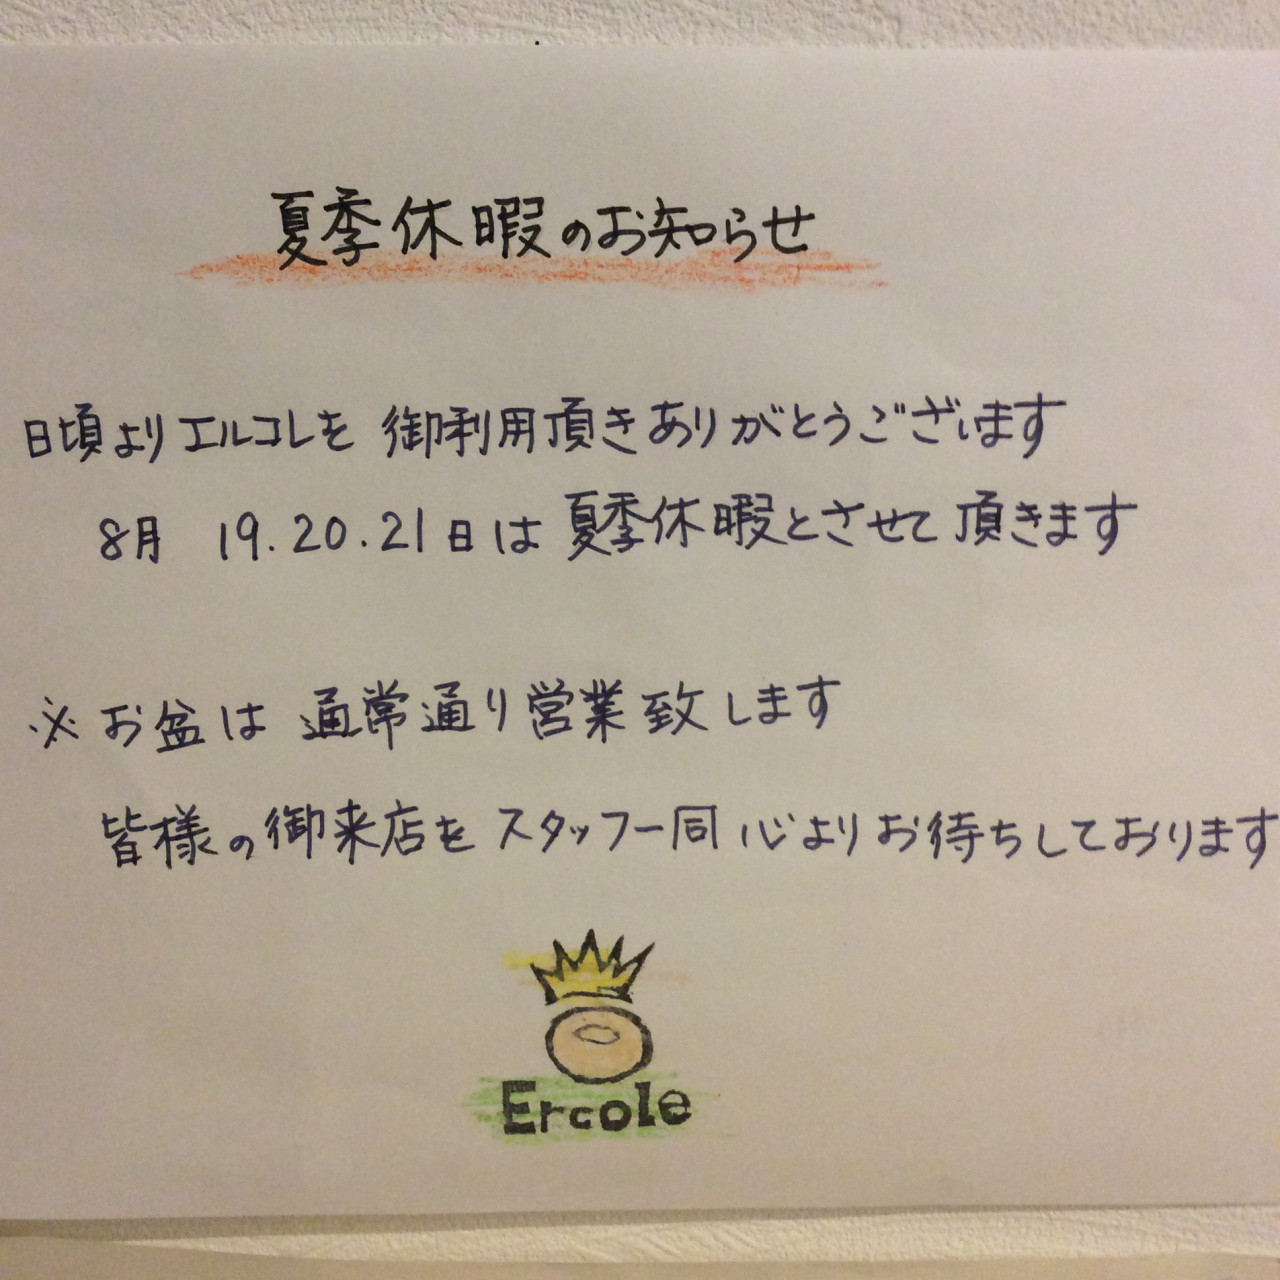 夏季休暇のお知らせ
日頃よりエルコレを御利用頂きありがとうございます
8月 19.20.21日は夏季休暇とさせて頂きます
※お盆は通常通り営業致します
皆様の御来店をスタッフ一同心よりお待ちしております
Ercole